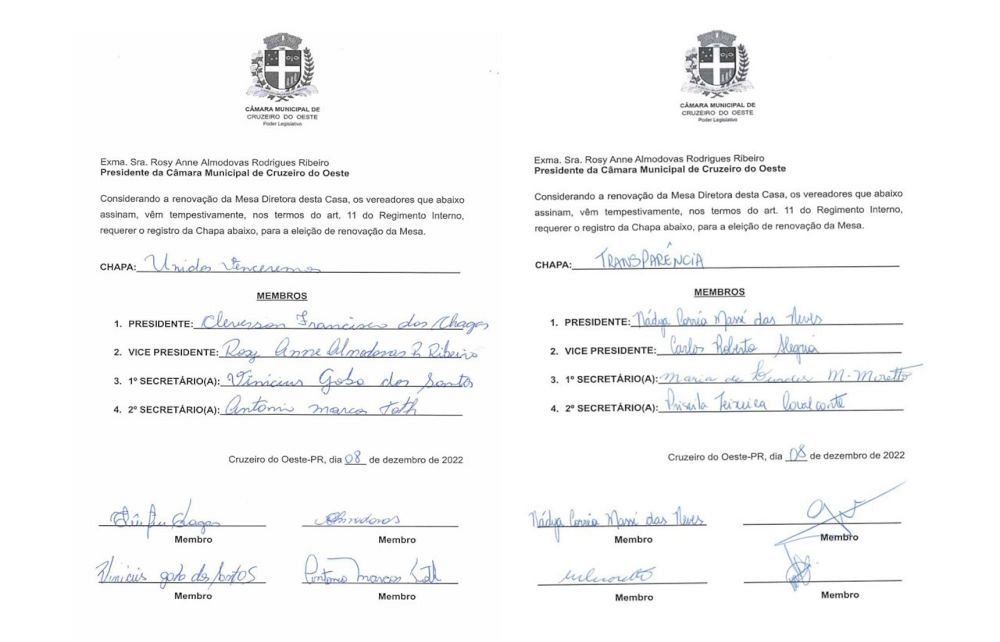 CÂMARA MUNICIPAL DE
CRUZEIRO DO OESTE
Poder Legislativo
Exma. Sra. Rosy Anne Almodovas Rodrigues Ribeiro
Presidente da Câmara Municipal de Cruzeiro do Oeste
Considerando a renovação da Mesa Diretora desta Casa, os vereadores que abaixo
assinam, vêm tempestivamente, nos termos do art. 11 do Regimento Interno,
requerer o registro da Chapa abaixo, para a eleição de renovação da Mesa.
CHAPA: Unidos Venceremos
MEMBROS
1. PRESIDENTE: Cleverson Francisco dos Chagas
2. VICE PRESIDENTE: Rosy Anne Almodovas R. Ribeiro
3. 1º SECRETÁRIO(A): Vinicius Gobo dos Santos
4. 2º SECRETÁRIO(A): Antonio Marcos Toth
Cruzeiro do Oeste-PR, dia 08 de dezembro de 2022
Chagas Almodovas
Membro Membro
Vinicius gobo dos santos Antonio Marcos Toth
Membro Membro
CÂMARA MUNICIPAL DE
CRUZEIRO DO OESTE
Poder Legislativo
Exma. Sra. Rosy Anne Almodovas Rodrigues Ribeiro
Presidente da Câmara Municipal de Cruzeiro do Oeste
Considerando a renovação da Mesa Diretora desta Casa, os vereadores que abaixo
assinam, vêm tempestivamente, nos termos do art. 11 do Regimento Interno,
requerer o registro da Chapa abaixo, para a eleição de renovação da Mesa.
CHAPA: TRANSPARÊNCIA
MEMBROS
1. PRESIDENTE: Nádya Correia Massé das Neves
2. VICE PRESIDENTE: Carlos Roberto
3. 1º SECRETÁRIO(A): Maria de Lourdes M. Moretto
4. 2º SECRETÁRIO(A): Priscila Teixeira Cavalcante
Cruzeiro do Oeste-PR, dia 08 de dezembro de 2022
Nádya Correia Massé das Neves
Membro Membro
Membro Membro